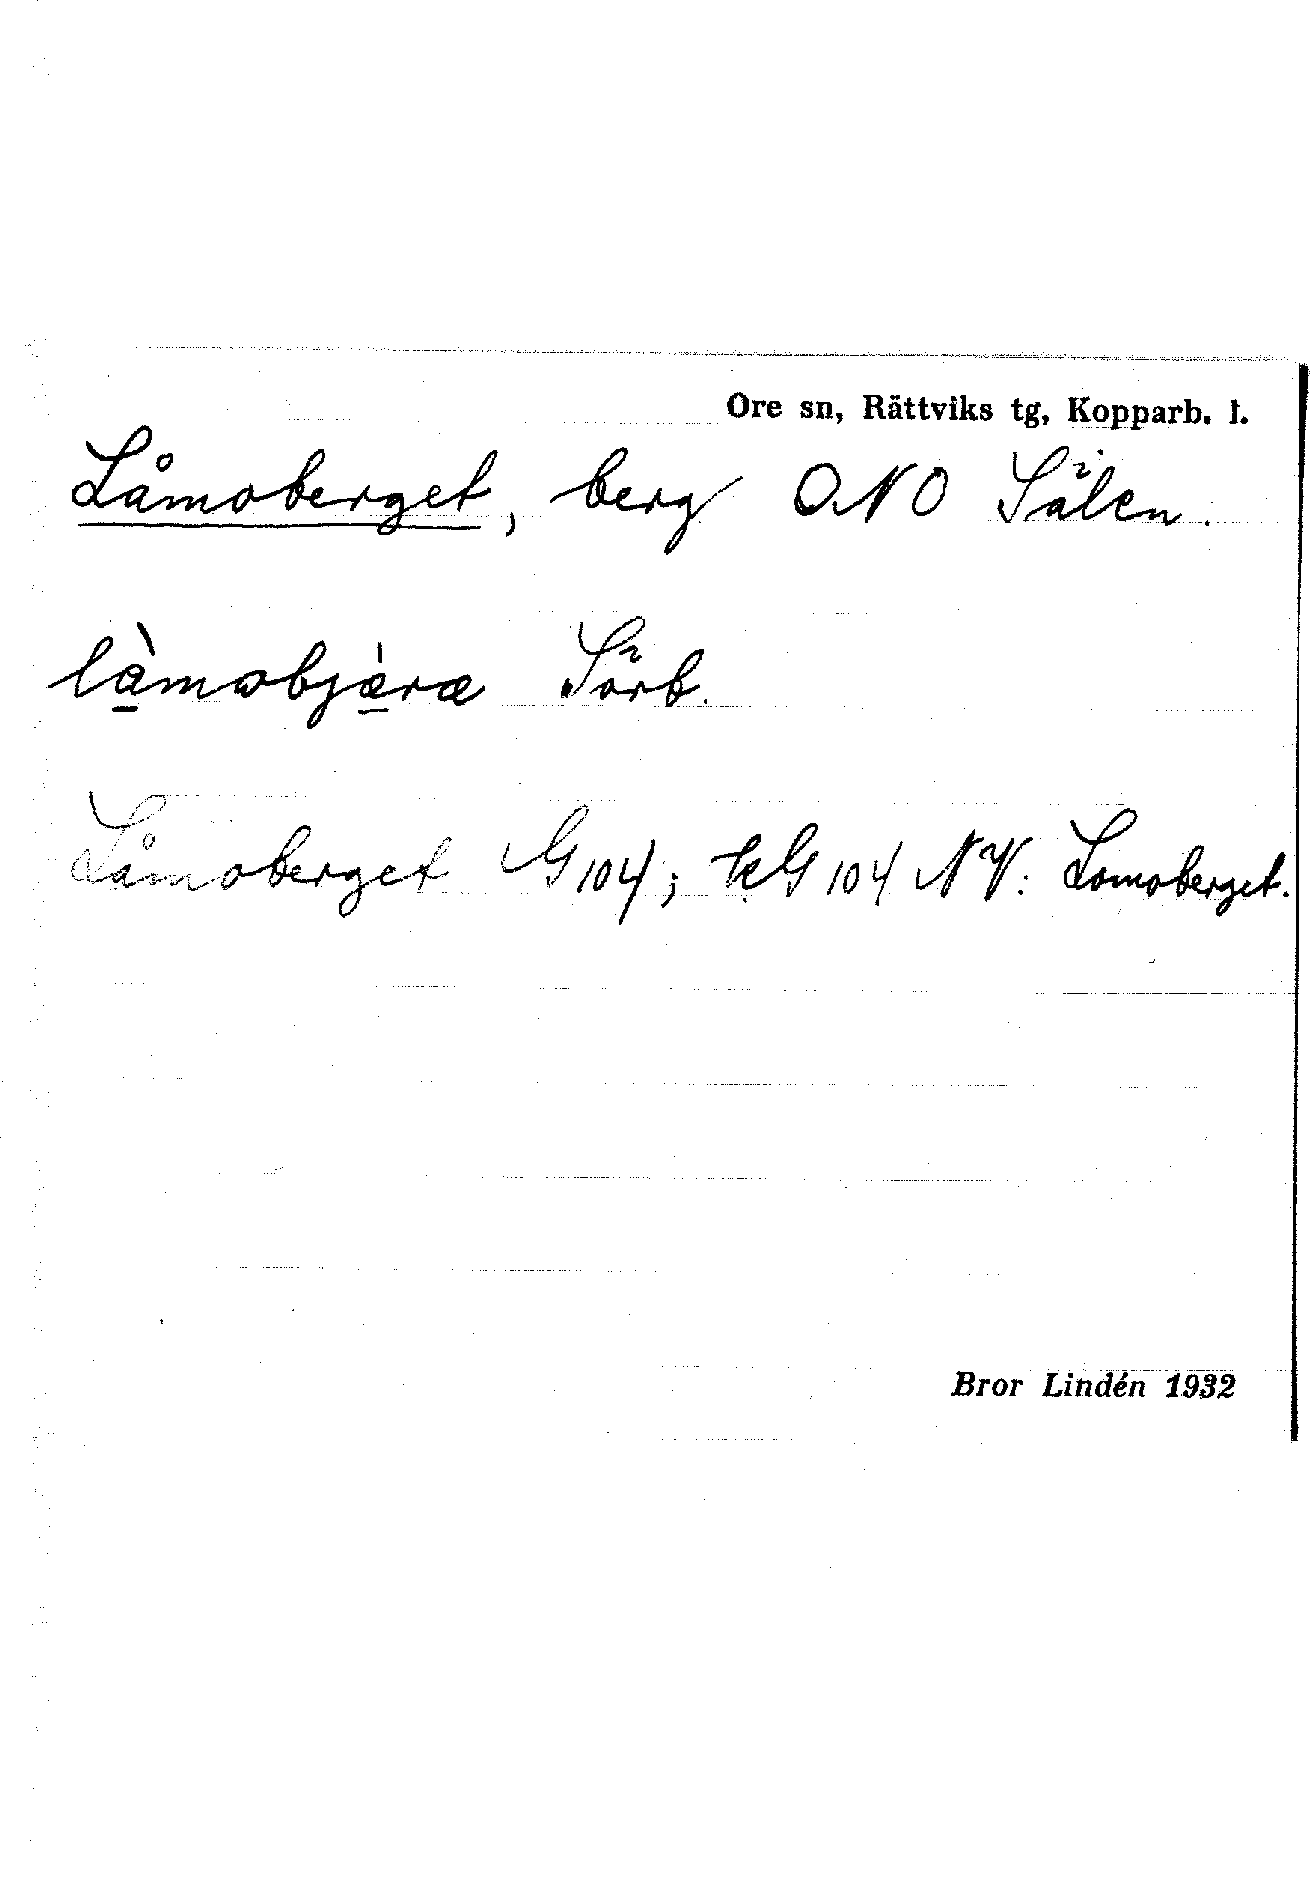 Ore sn, Rättviks tg, Kopparb. l.
Låmoberget, berg ONO Sälen.
làmobjæ̀ræ Sörb.
Låmoberget G 104; kG 104 NV: Lomoberget.
Bror Lindén 1932